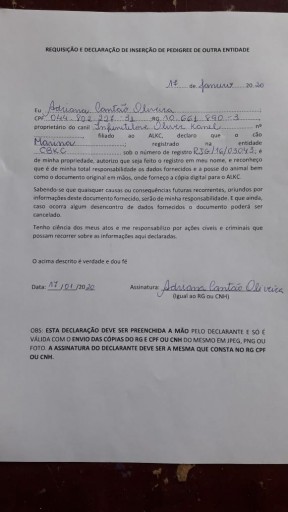 REQUISIÇÃO E DECLARAÇÃO DE INSERÇÃO DE PEDIGREE DE OUTRA ENTIDADE
17 de Janeiro 20 20
Eu Adriana Cantão Oliveira,
CPF RG
proprietário do canil Oliver Kanel, nº
filiado ao ALKC, declaro que o cão
Marina, registrado na entidade
CBKC sob o número de registro é
de minha propriedade, autorizo que seja feito o registro em meu nome, e reconheço
que é de minha total responsabilidade os dados fornecidos e a posse do animal bem
como o documento original em mãos, onde forneço a cópia digital para o ALKC.
Sabendo-se que quaisquer causas ou consequências futuras recorrentes, oriundos por
informações deste documento fornecido, serão de minha responsabilidade. E que ainda,
caso ocorra algum desencontro de dados fornecidos o documento poderá ser
cancelado.
Tenho ciência dos meus atos e me responsabilizo por ações cíveis e criminais que
possam recorrer sobre as informações aqui declaradas.
O acima descrito é verdade e dou fé
Data: 17/01/2020 Assinatura: Adriana Cantão Oliveira
(Igual ao RG ou CNH)
OBS: ESTA DECLARAÇÃO DEVE SER PREENCHIDA A MÃO PELO DECLARANTE E SÓ É
VÁLIDA COM O ENVIO DAS CÓPIAS DO RG E CPF OU CNH DO MESMO EM JPEG, PNG OU
FOTO. A ASSINATURA DO DECLARANTE DEVE SER A MESMA QUE CONSTA NO RG CPF
OU CNH.